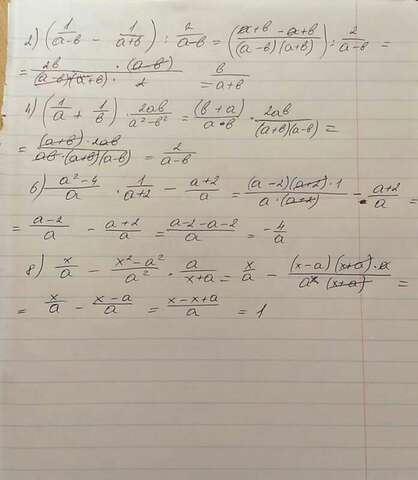 2) (1/(a-b) - 1/(a+b)) : 2/(a-b) = ((a+b-a+b)/((a-b)(a+b))) : 2/(a-b) =
= 2b/((a-b)(a+b)) · (a-b)/2 = b/(a+b)
4) (1/a + 1/b) · 2ab/(a²-b²) = (b+a)/(a·b) · 2ab/((a+b)(a-b)) =
= ((a+b)·2ab)/(ab·(a+b)(a-b)) = 2/(a-b)
6) (a²-4)/a · 1/(a+2) - (a+2)/a = ((a-2)(a+2)·1)/(a·(a+2)) - (a+2)/a =
= (a-2)/a - (a+2)/a = (a-2-a-2)/a = -4/a
8) x/a - (x²-a²)/a² · a/(x+a) = x/a - ((x-a)(x+a)·a)/(a²(x+a)) =
= x/a - (x-a)/a = (x-x+a)/a = 1